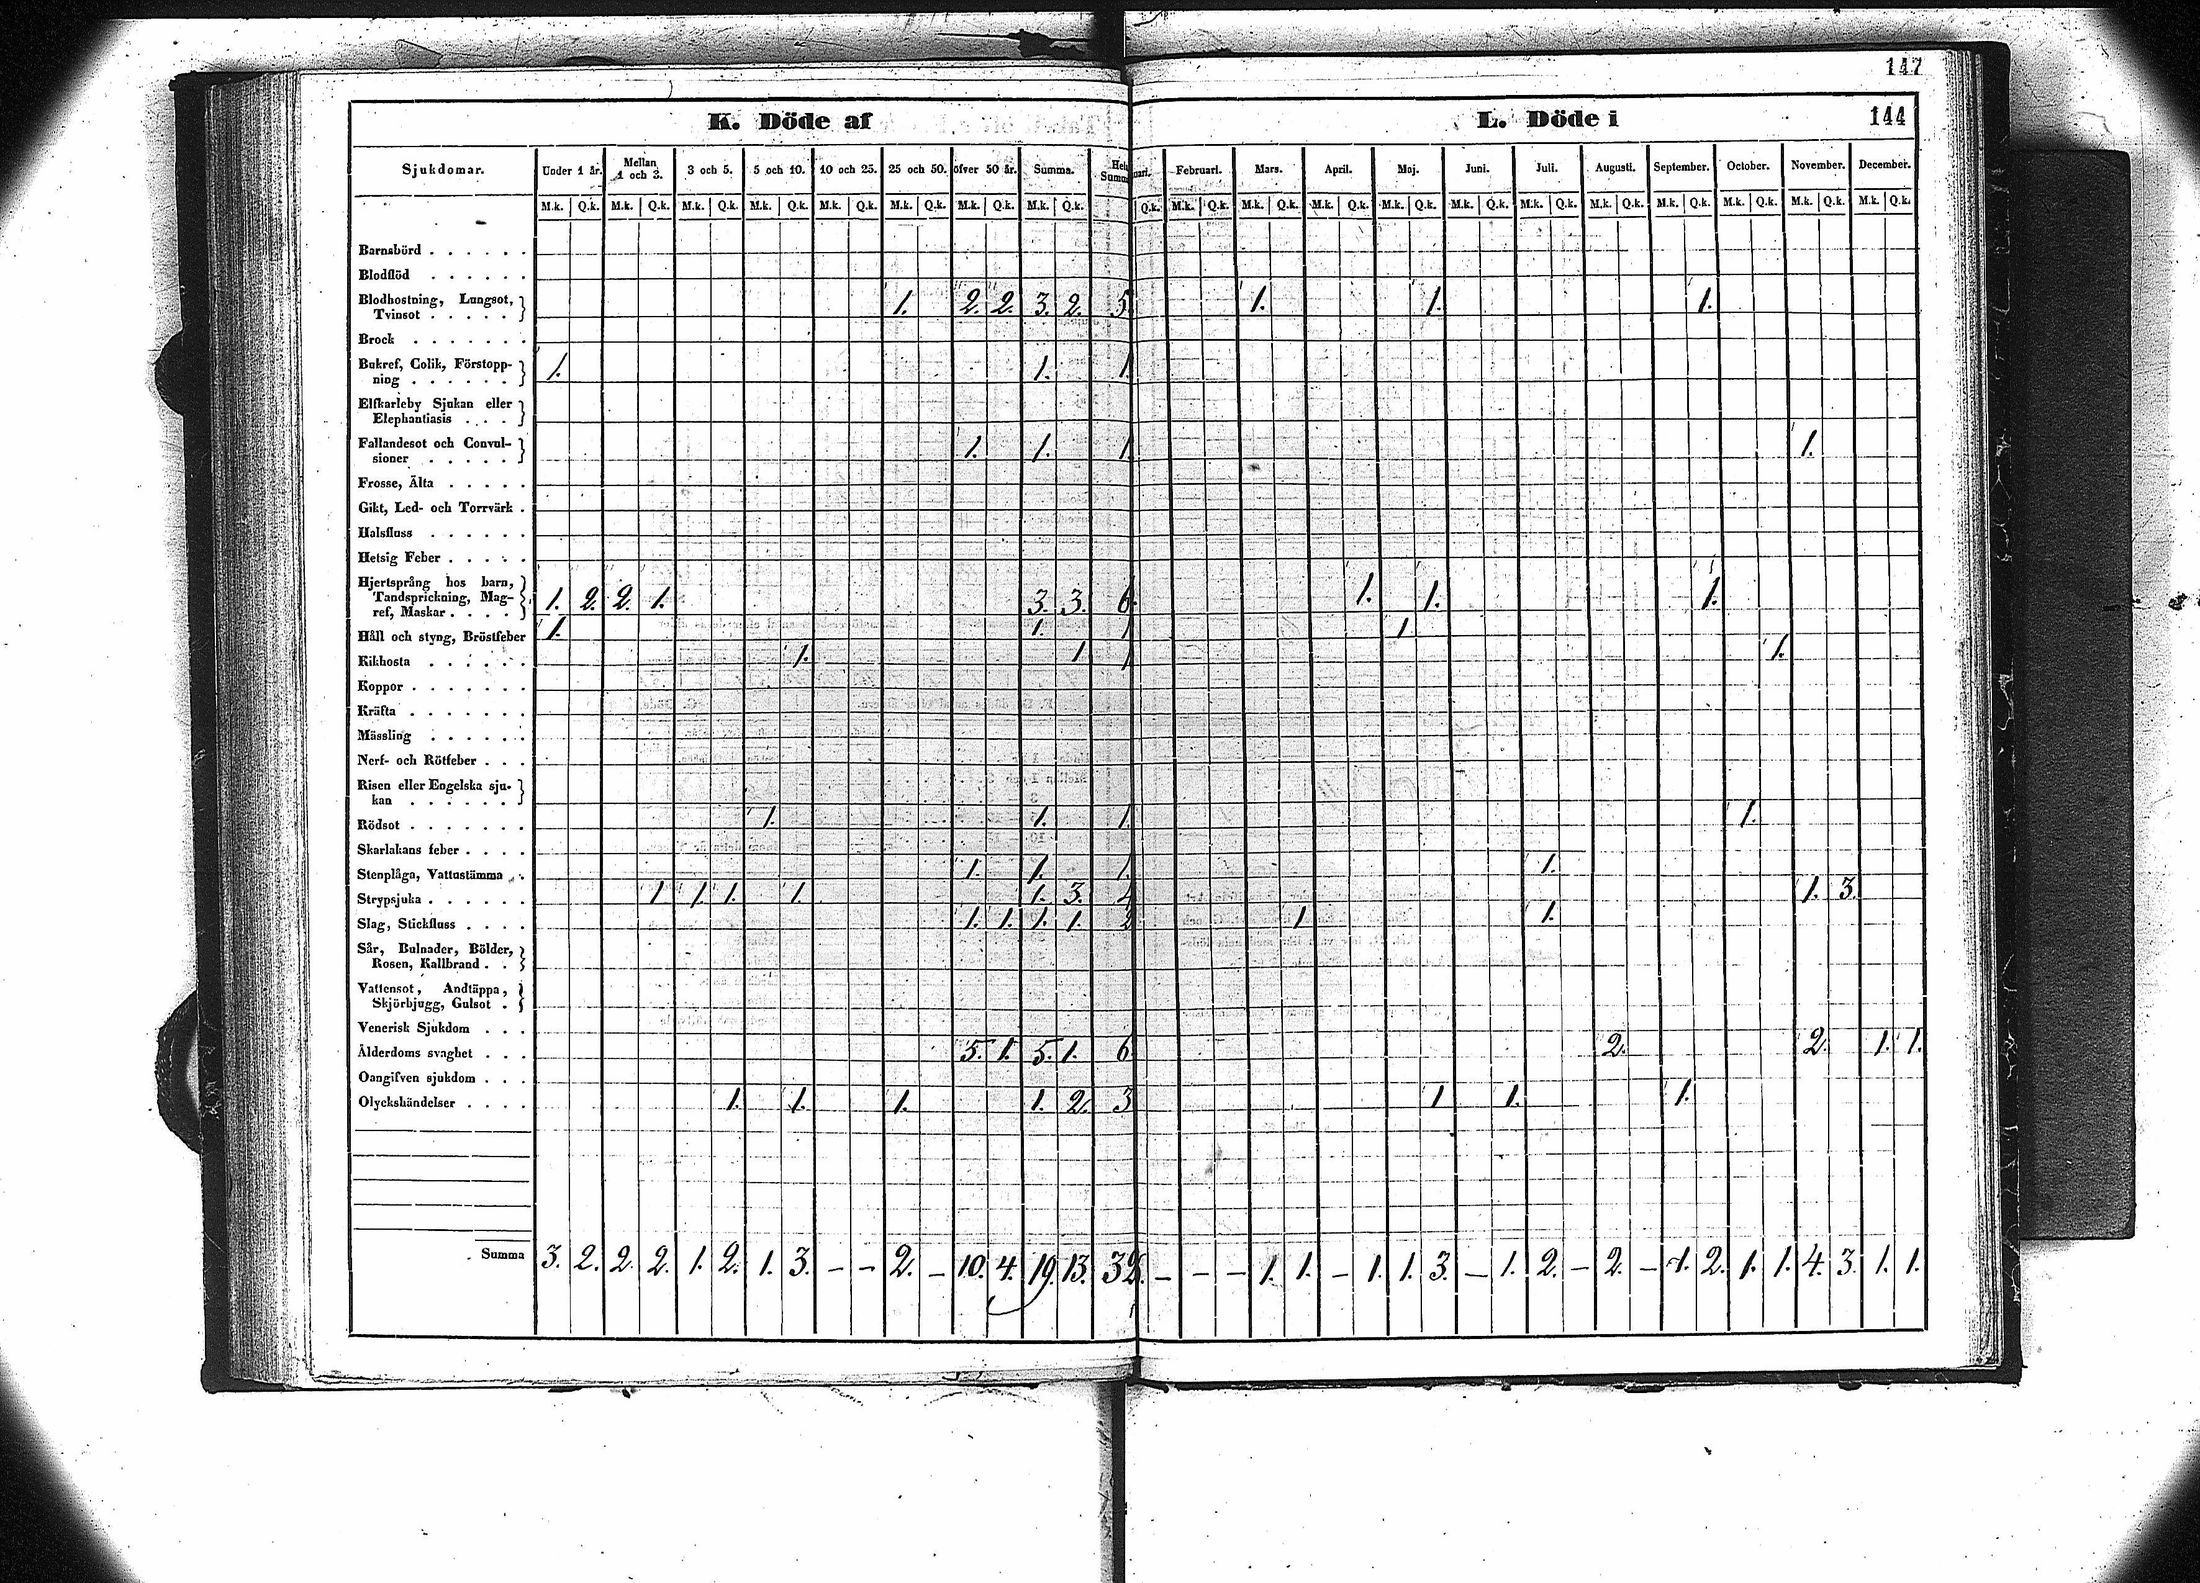 147
K. Döde af
L. Döde i
144
Sjukdomar. Under 1 år. Mellan 1 och 3. 3 och 5. 5 och 10. 10 och 25. 25 och 50. öfver 50 år. Summa. Hela Summa uari. Februari. Mars. April. Maj. Juni. Juli. Augusti. September. October. November. December.
M.k. Q.k. M.k. Q.k. M.k. Q.k. M.k. Q.k. M.k. Q.k. M.k. Q.k. M.k. Q.k. M.k. Q.k. Q.k. M.k. Q.k. M.k. Q.k. M.k. Q.k. M.k. Q.k. M.k. Q.k. M.k. Q.k. M.k. Q.k. M.k. Q.k. M.k. Q.k. M.k. Q.k. M.k. Q.k.
Barnsbörd . . . . . .
Blodflöd . . . . . .
Blodhostning, Lungsot,
Tvinsot . . . . . 1. 2. 2. 3. 2. 5 1. 1. 1.
Brock . . . . . . .
Bukref, Colik, Förstopp-
ning . . . . . . 1. 1. 1.
Elfkarleby Sjukan eller
Elephantiasis . . .
Fallandesot och Convul-
sioner . . . . . 1. 1. 1. 1.
Frosse, Älta . . . . .
Gikt, Led- och Torrvärk .
Halsfluss . . . . . .
Hetsig Feber . . . . .
Hjertsprång hos barn,
Tandsprickning, Mag-
ref, Maskar . . . . 1. 2. 2. 1. 3. 3. 6. 1. 1. 1.
Håll och styng, Bröstfeber 1. 1. 1 1
Kikhosta . . . . . . 1. 1 1 1.
Koppor . . . . . . .
Kräfta . . . . . . .
Mässling . . . . . .
Nerf- och Rötfeber . . .
Risen eller Engelska sju-
kan . . . . . .
Rödsot . . . . . . . 1. 1. 1. 1.
Skarlakans feber . . . .
Stenplåga, Vattustämma . 1. 1. 1. 1.
Strypsjuka . . . . . . 1 1. 1. 1. 1. 3. 4 1. 3.
Slag, Stickfluss . . . . 1. 1. 1. 1. 2 1 1.
Sår, Bulnader, Bölder,
Rosen, Kallbrand . .
Vattensot, Andtäppa,
Skjörbjugg, Gulsot .
Venerisk Sjukdom . . .
Ålderdoms svaghet . . . 5. 1. 5. 1. 6 2. 2. 1. 1.
Oangifven sjukdom . . .
Olyckshändelser . . . . 1. 1. 1. 1. 2. 3 1 1. 1.
Summa 3. 2. 2. 2. 1. 2. 1. 3. – – 2. – 10. 4. 19 13. 32. – – – 1. 1. – 1. 1. 3. – 1. 2. – 2. – 1. 2. 1. 1. 4. 3. 1. 1.